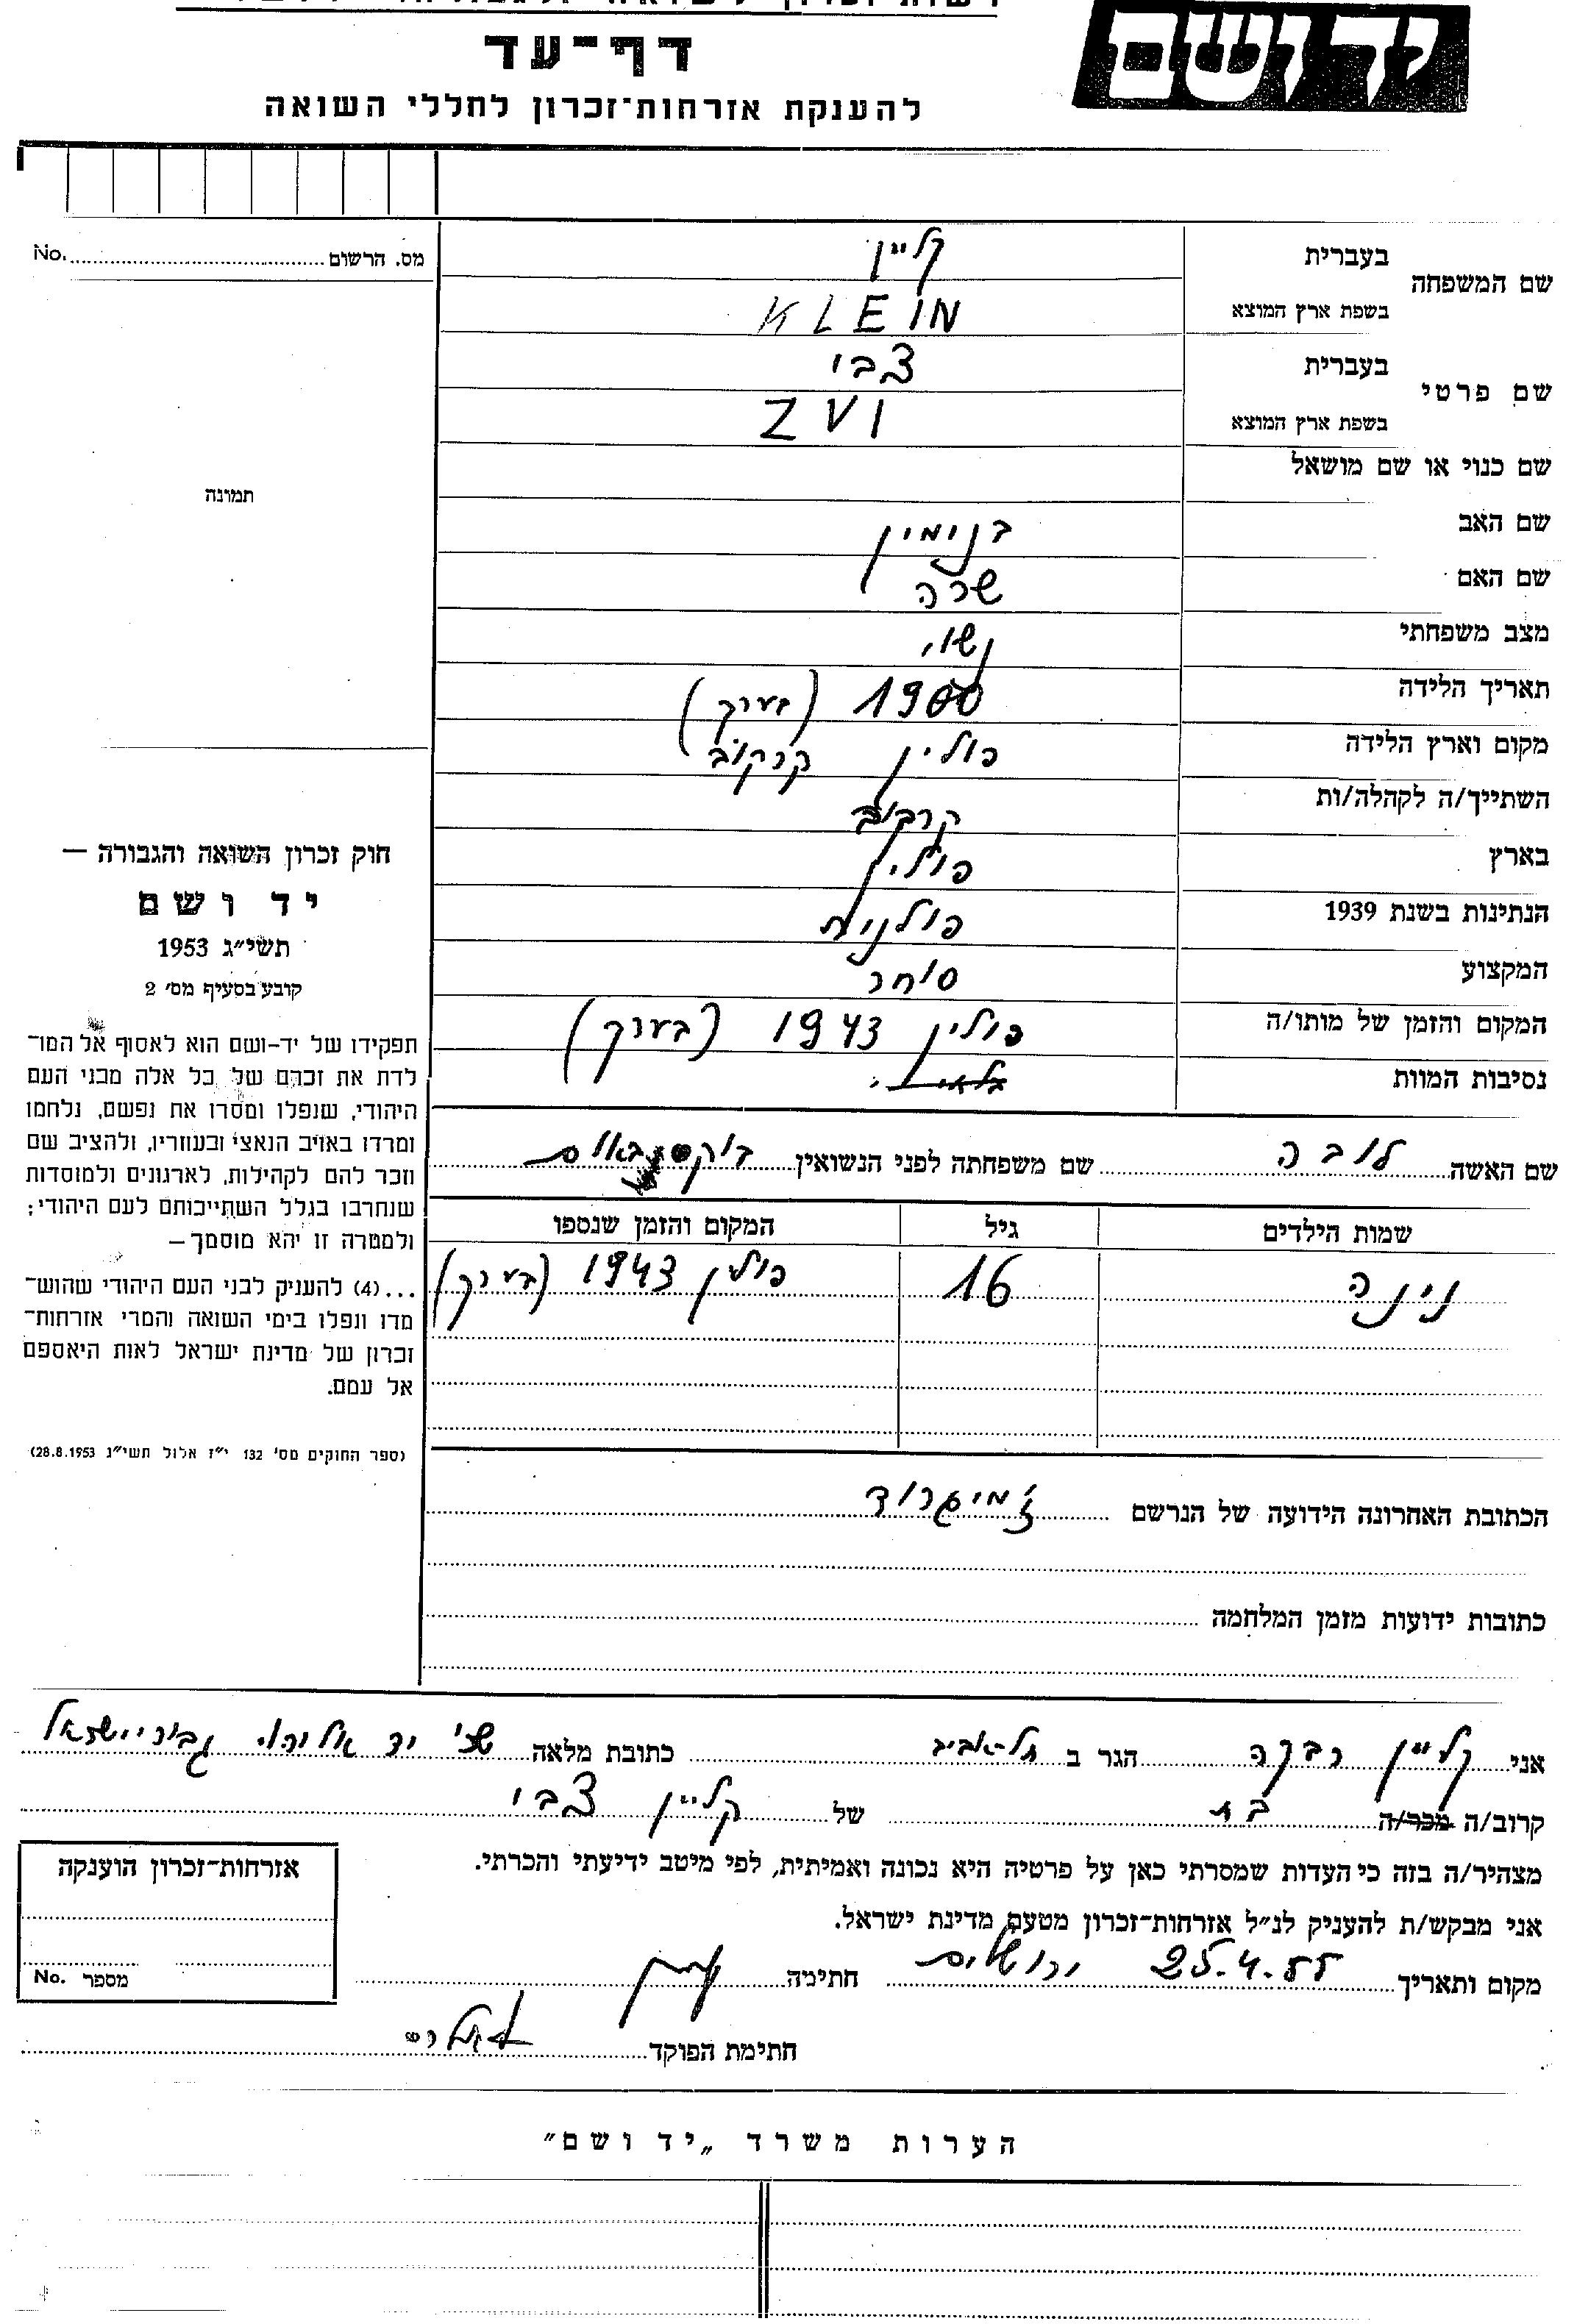 דף־עד
ידושם
להענקת אזרחות־זכרון לחללי השואה
מס. הרשום No.
תמונה
שם המשפחה
בעברית קליין
בשפת ארץ המוצא KLEIN
שם פרטי
בעברית צבי
בשפת ארץ המוצא ZVI
שם כנוי או שם מושאל
שם האב בנימין
שם האם שרה
מצב משפחתי נשוי
תאריך הלידה 1900 (בערך)
מקום וארץ הלידה פולין קרקוב
השתייך/ה לקהלה/ות קרקוב
בארץ פולין
הנתינות בשנת 1939 פולנית
המקצוע סוחר
המקום והזמן של מותו/ה פולין 1943 (בערך)
נסיבות המוות
חוק זכרון השואה והגבורה —
יד ושם
תשי״ג 1953
קובע בסעיף מס׳ 2
תפקידו של יד-ושם הוא לאסוף אל המו־
לדת את זכרם של כל אלה מבני העם
היהודי, שנפלו ומסרו את נפשם, נלחמו
ומרדו באויב הנאצי ובעוזריו, ולהציב שם
וזכר להם לקהילות, לארגונים ולמוסדות
שנחרבו בגלל השתייכותם לעם היהודי;
ולמטרה זו יהא מוסמך—
...(4) להעניק לבני העם היהודי שהוש־
מדו ונפלו בימי השואה והמרי אזרחות־
זכרון של מדינת ישראל לאות היאספם
אל עמם.
(ספר החוקים מס׳ 132 י״ז אלול תשי״ג 28.8.1953)
שם האשה לובה שם משפחתה לפני הנשואין
שמות הילדים גיל המקום והזמן שנספו
נינה 16 פולין 1943 (בערך)
הכתובת האחרונה הידועה של הנרשם ז׳מיגרוד
כתובות ידועות מזמן המלחמה
אני קליין רבקה הגר ב תל־אביב כתובת מלאה יד אליהו
קרוב/ה מכר/ה בת של קליין צבי
מצהיר/ה בזה כי העדות שמסרתי כאן על פרטיה היא נכונה ואמיתית, לפי מיטב ידיעתי והכרתי.
אני מבקש/ת להעניק לנ״ל אזרחות־זכרון מטעם מדינת ישראל.
מקום ותאריך 25.4.55 ירושלים חתימה
חתימת הפוקד
אזרחות־זכרון הוענקה
מספר No.
הערות משרד „יד ושם"